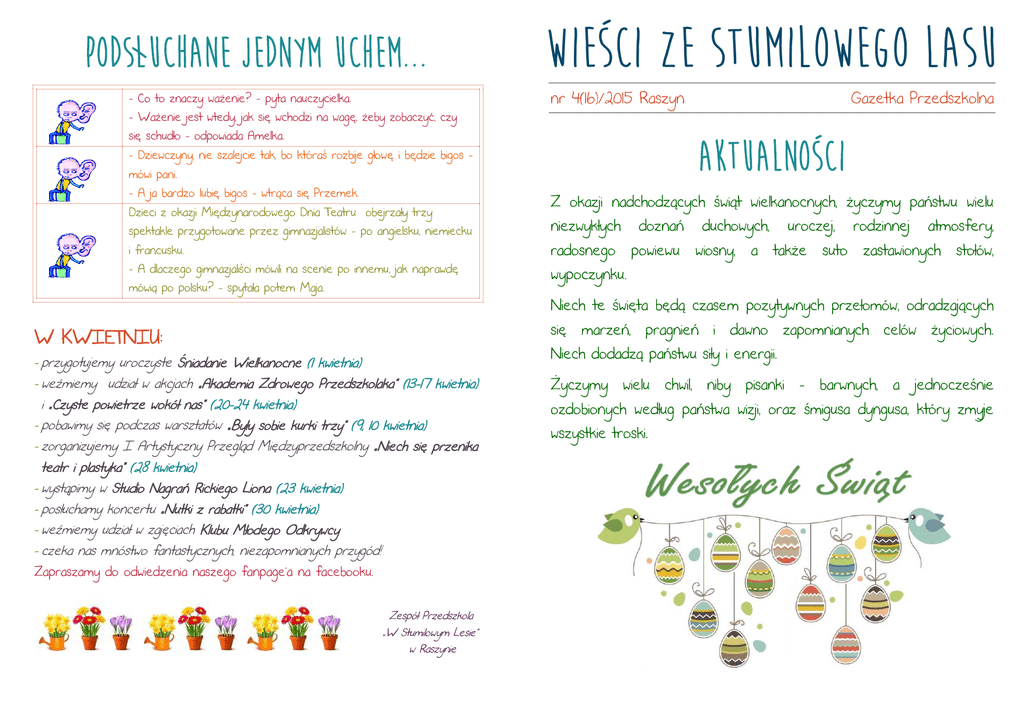 PODSŁUCHANE JEDNYM UCHEM...
- Co to znaczy ważenie? - pyta nauczycielka.
- Ważenie jest wtedy, jak się wchodzi na wagę, żeby zobaczyć, czy
się schudło - odpowiada Amelka.
- Dziewczyny, nie szalejcie tak, bo któraś rozbije głowę i będzie bigos -
mówi pani.
- A ja bardzo lubię, bigos - wtrąca się Przemek.
Dzieci z okazji Międzynarodowego Dnia Teatru obejrzały trzy
spektakle przygotowane przez gimnazjalistów - po angielsku, niemiecku
i francusku.
- A dlaczego gimnazjaliści mówili na scenie po innemu, jak naprawdę
mówią po polsku? - spytała potem Maja.
W KWIETNIU:
- przygotujemy uroczyste Śniadanie Wielkanocne (1 kwietnia)
- weźmiemy udział w akcjach „Akademia Zdrowego Przedszkolaka" (13-17 kwietnia)
i „Czyste powietrze wokół nas" (20-24 kwietnia)
- pobawimy się podczas warsztatów „Były sobie kurki trzy" (9, 10 kwietnia)
- zorganizujemy I Artystyczny Przegląd Międzyprzedszkolny „Niech się przenika
teatr i plastyka" (28 kwietnia)
- wystąpimy w Studio Nagrań Rickiego Liona (23 kwietnia)
- posłuchamy koncertu „Nutki z rabatki" (30 kwietnia)
- weźmiemy udział w zgjęciach Klubu Młodego Odkrywcy
- czeka nas mnóstwo fantastycznych, niezapomnianych przygód!
Zapraszamy do odwiedzenia naszego fanpage'a na facebooku.
Zespół Przedszkola
„W Stumilowym Lesie"
w Raszynie
WIEŚCI ZE STUMILOWEGO LASU
nr 4(16)/2015 Raszyn Gazetka Przedszkolna
AKTUALNOŚCI
Z okazji nadchodzących świąt wielkanocnych, życzymy państwu wielu
niezwykłych doznań duchowych, uroczej, rodzinnej atmosfery,
radosnego powiewu wiosny, a także suto zastawionych stołów,
wypoczynku.
Niech te święta będą czasem pozytywnych przełomów, odradzających
się marzeń, pragnień i dawno zapomnianych celów życiowych.
Niech dodadzą państwu siły i energii.
Życzymy wielu chwil, niby pisanki - barwnych, a jednocześnie
ozdobionych według państwa wizji, oraz śmigusa dyngusa, który zmyje
wszystkie troski.
Wesołych Świąt